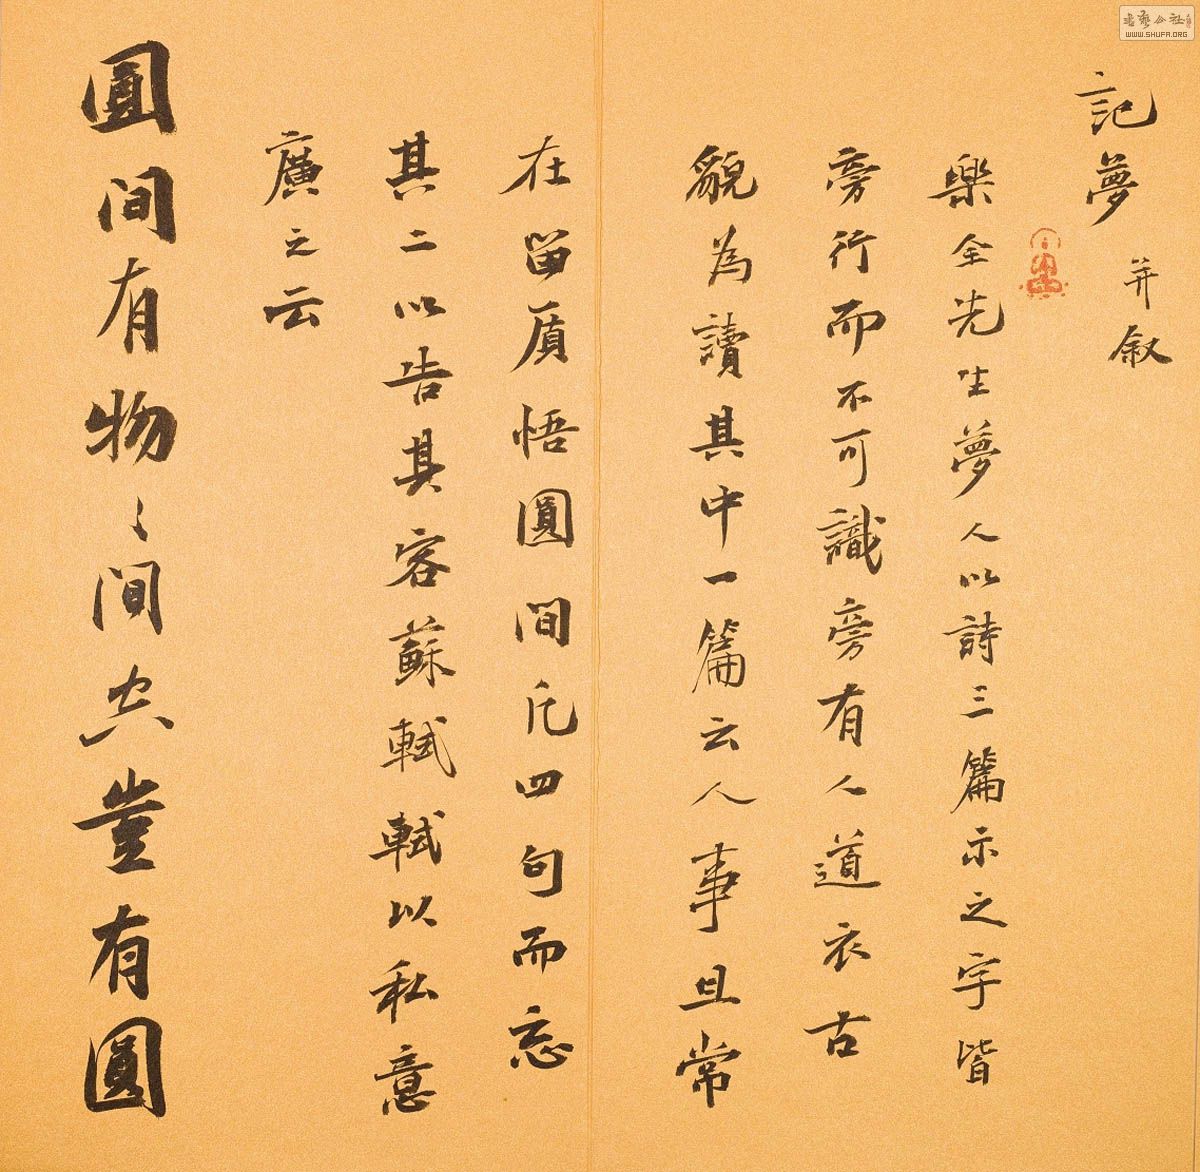 記夢 并叙
樂全先生夢人以詩三篇示之字皆
旁行而不可識旁有人道衣古
貌為讀其中一篇云人事且常
在留質悟圓間凡四句而忘
其二以告其客蘇軾軾以私意
廣之云
圓間有物〻間空豈有圓
書藝公社
WWW.SHUFA.ORG